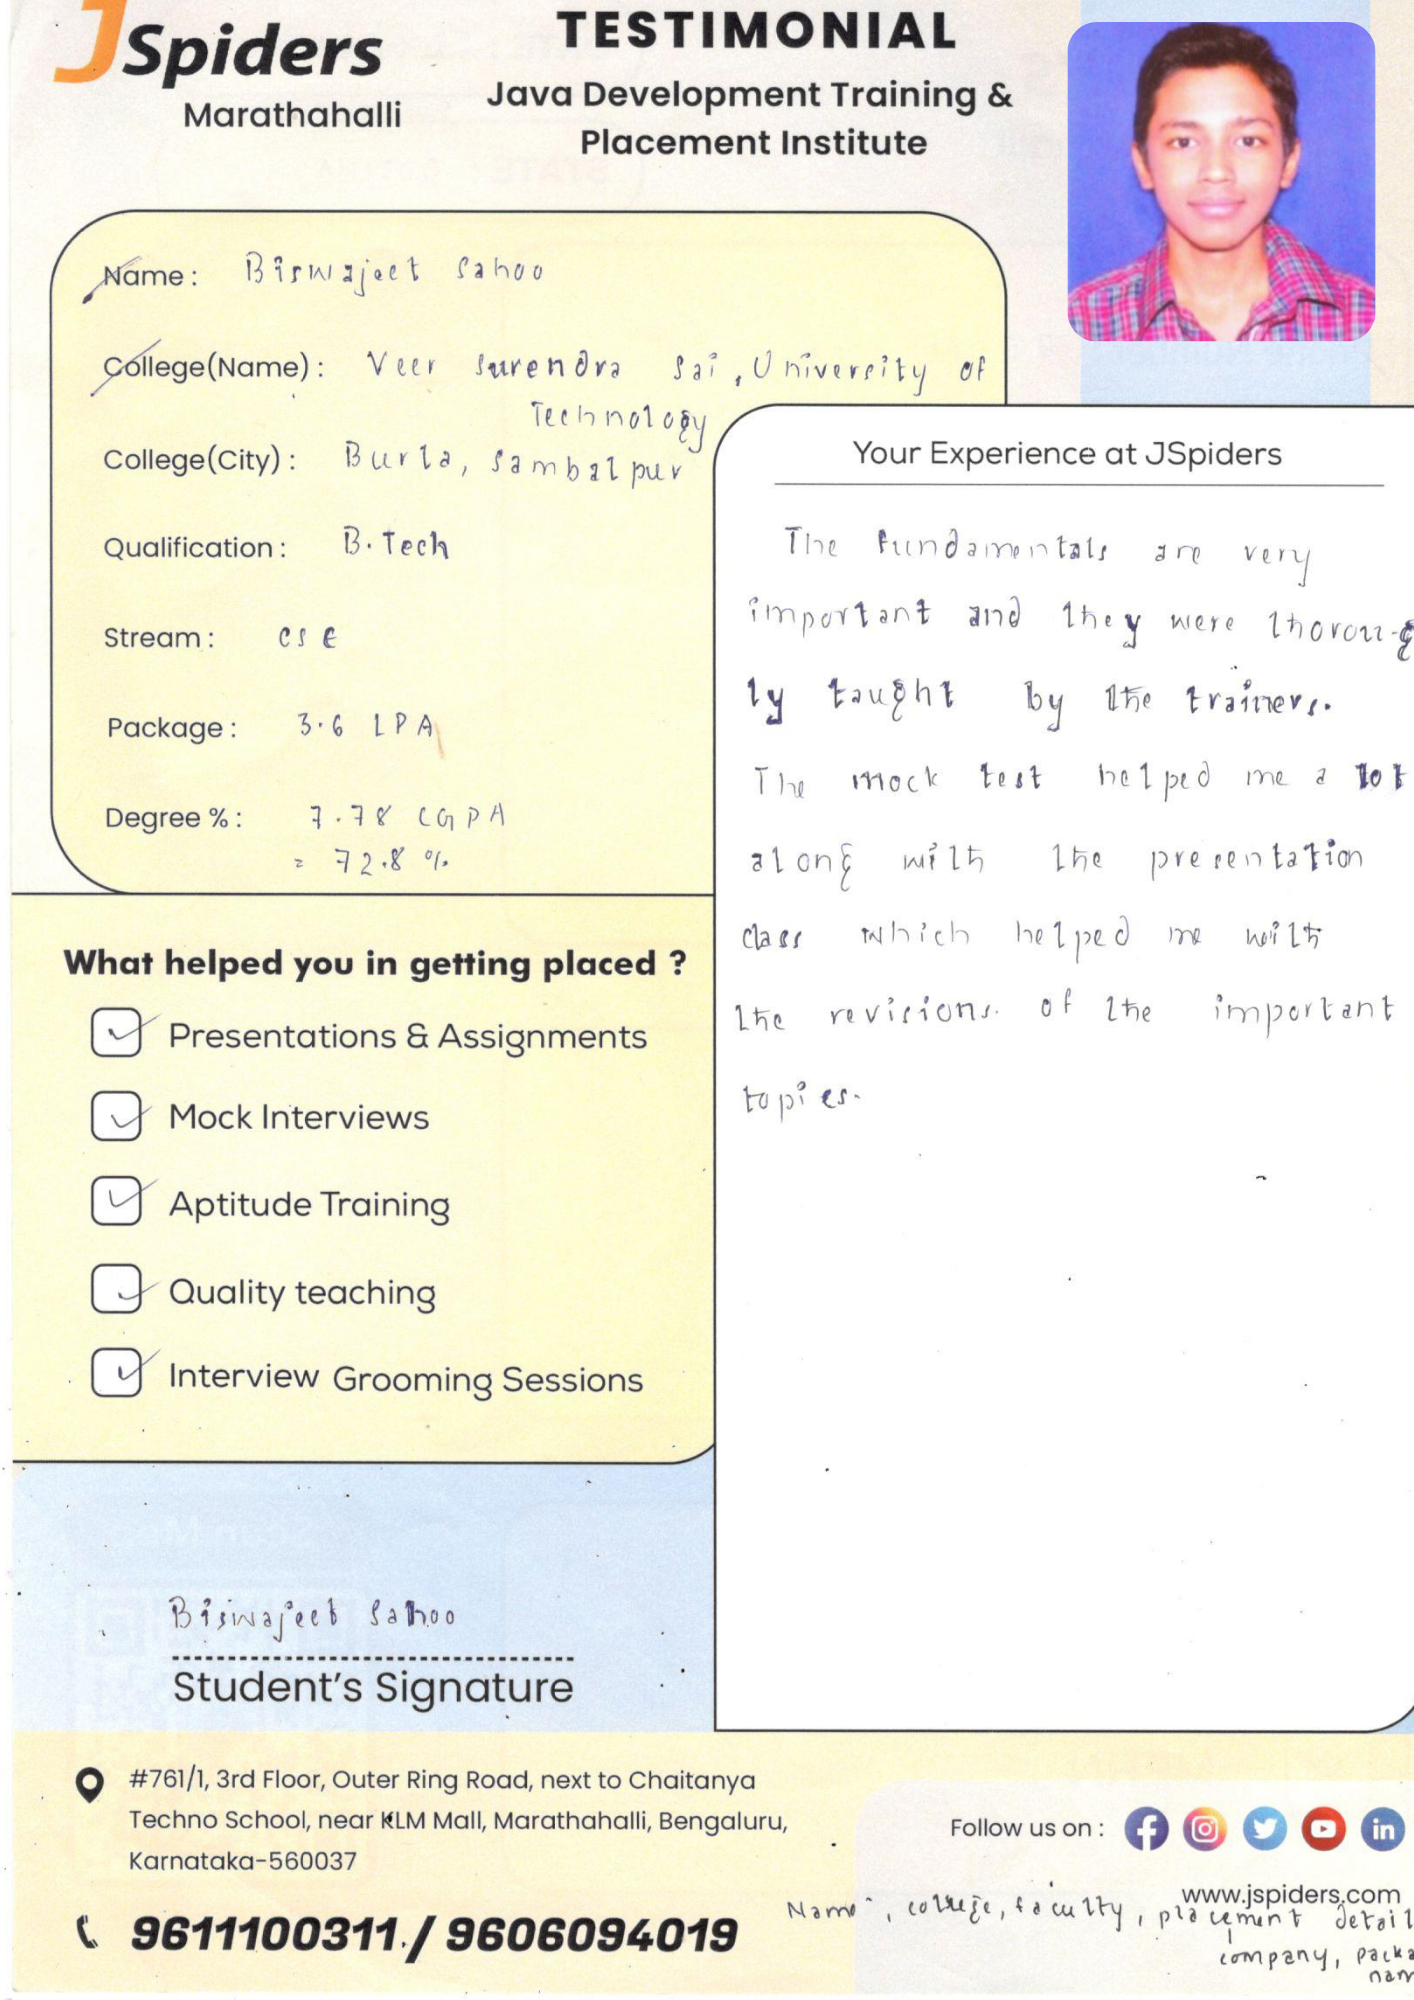 JSpiders
Marathahalli
TESTIMONIAL
Java Development Training &
Placement Institute
Name : Biswajeet Sahoo
College(Name) : Veer Surendra Sai, University of
Technology
College(City) : Burla, Sambalpur
Qualification : B.Tech
Stream : CSE
Package : 3.6 LPA
Degree % : 7.78 CGPA
= 72.8 %
What helped you in getting placed ?
Presentations & Assignments
Mock Interviews
Aptitude Training
Quality teaching
Interview Grooming Sessions
Your Experience at JSpiders
The fundamentals are very
important and they were thorou-g
ly taught by the trainers.
The mock test helped me a lot
along with the presentation
class which helped me with
the revisions. of the important
topics.
Biswajeet Sahoo
Student's Signature
#761/1, 3rd Floor, Outer Ring Road, next to Chaitanya
Techno School, near KLM Mall, Marathahalli, Bengaluru,
Karnataka-560037
9611100311 / 9606094019
Follow us on :
www.jspiders.com
Name, college, faculty, placement detail
company, packa
nam